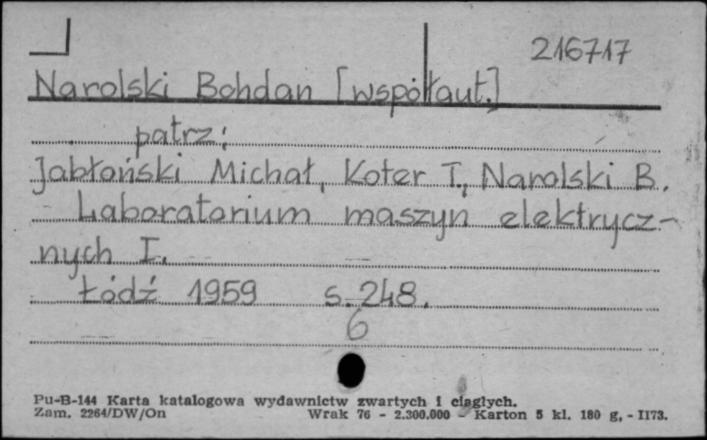 216717
Narolski Bohdan [współaut.]
patrz:
Jabłoński Michał, Koter T., Narolski B.
Laboratorium maszyn elektrycz-
nych I.
Łódź 1959 s. 248.
6
Pu-B-144 Karta katalogowa wydawnictw zwartych i ciągłych.
Zam. 2264/DW/On Wrak 76 - 2.300.000 - Karton 5 kl. 180 g, - II73.